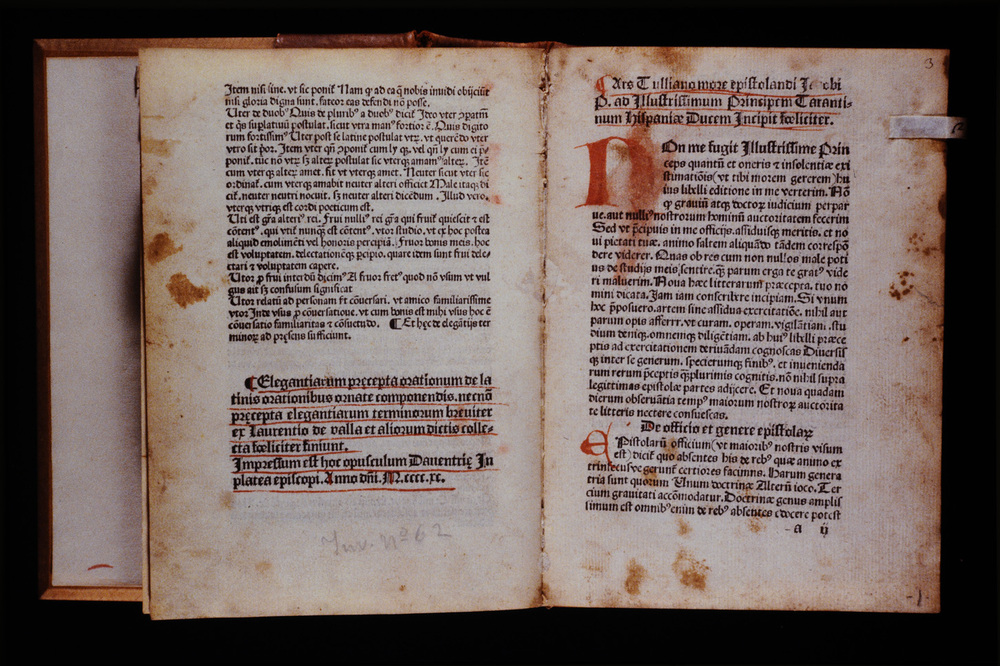 Item nisi sine. vt sic ponit̃ Nam q̃ ad ea q̃ nobis inuidi obijciũt
nisi gloria digna sunt. fateor eas defendi nõ posse.
Vter de duobꝰ Quis de pluribꝰ a duobꝰ dicit̃ Ideo vter ꝓpatm̃
et q̃s suplatiuũ postulat. sicut vtra manꝰ fortior ẽ. Quis digito
rum fortissimꝰ Uter post se latine postulat vtrꝝ. vt querẽdo vter
cum vterqꝫ alteꝝ amet. fit vt vterqꝫ amet. Neuter sicut vter sic
ordinat̃. cum vterqꝫ amabit neuter alteri officiet Male itaqꝫ di
cit̃. neuter neutri nocuit. sꝫ neuter alteri dicẽdum. Illud vero.
vterqꝫ vtriqꝫ est cordi poeticum est.
Uti est gr̃a alteriꝰ rei. Frui nulliꝰ rei gr̃a qui fruit̃ quiescit et est
cõtentꝰ. qui vtit̃ nunq̃ est cõtentꝰ. vtor studio. vt ex hoc postea
aliquid emolimẽti vel honoris percipiã. Fruor bonis meis. hoc
est voluptatem. delectationẽqꝫ p̱cipio. quare idem sunt frui dele-
ctari et voluptatem capere.
Utor ꝓ frui interdũ dicim̃ꝰ A fruor fretꝰ quod nõ vsum vt vul
gus ait sꝫ confusum significat
Utor relatũ ad personam fit cõuersari. vt amico familiarissime
vtor Inde vsus ꝓ cõuersatione. vt cum bonis est mihi vsus hoc ẽ
cõuersatio familiaritas et cõsuetudo. ¶ Et hęc de elegãtijs ter
minoꝝ ad pręsens sufficiunt.
¶ Elegantiarum pręcepta orationum de la
tinis orationibus ornate componendis. necnõ
pręcepta elegantiarum terminorum breuiter
ex Laurentio de valla et aliorum dictis colle-
cta fœliciter finiunt.
Impressum est hoc opusculum Dauentrię In
platea episcopi. Anno dñi. M.cccc.xc.
Inv. Nº 62
3
¶ Ars Tulliano more epistolandi Jacobi
P. ad Illustrissimum Principem Taranti-
num Hispaniæ Ducem Incipit fœliciter.
NOn me fugit Illustrissime Prin
ceps quantũ et oneris et insolentiæ exi
stimatiõis (vt tibi morem gererem) hu
ius libelli editione in me verterim. Nõ
q̃ grauiũ atqꝫ doctoꝝ iudicium perpar
ue. aut nulliꝰ nostrorum hominũ auctoritatem fecerim
Sed vt p̃cipuis in me officijs. assiduisqꝫ meritis. et no
ui pietati tuæ. animo saltem aliquãdo tãdem correspõ
dere viderer. Quas ob res cum non nullos male poti
us de studijs meis sentire. q̃ꝫ parum erga te gratꝰ vide
ri maluerim. Noua hæc litterarum præcepta. tuo nõ
mini dicata. Jam iam conscribere incipiam. Si vnum
hoc p̃posuero. artem sine assidua exercitatiõe. nihil aut
parum opis afferre. vt curam. operam. vigilãtiam. stu
dium deniqꝫ. omnemqꝫ diligẽtiam. ab huiꝰ libelli præce
ptis ad exercitationem deriuãdam cognoscas Diuersis
qꝫ inter se generum. specierumqꝫ finibꝰ. et inuenienda
rum rerum p̃ceptis q̃ꝫplurimis cognitis. nõ nihil supra
legittimas epistolæ partes adijcere. Et noua quadam
dierum obseruãtia tempꝰ maiorum nostroꝝ auctorita
te litteris nectere consuescas.
De officio et genere epistolaꝝ
EPistolarũ officium (vt maioribꝰ nostris visum
est) dicit̃ quo absentes his de rebꝰ quæ animo ex
trinsecusve gerunt̃ certiores facimus. Harum genera
tria sunt quorum Vnum doctrinæ Alterũ ioco. Ter
cium grauitati accõmodatur. Doctrinæ genus amplis
simum est omnibꝰ enim de rebꝰ absentes edocere potest
a ij